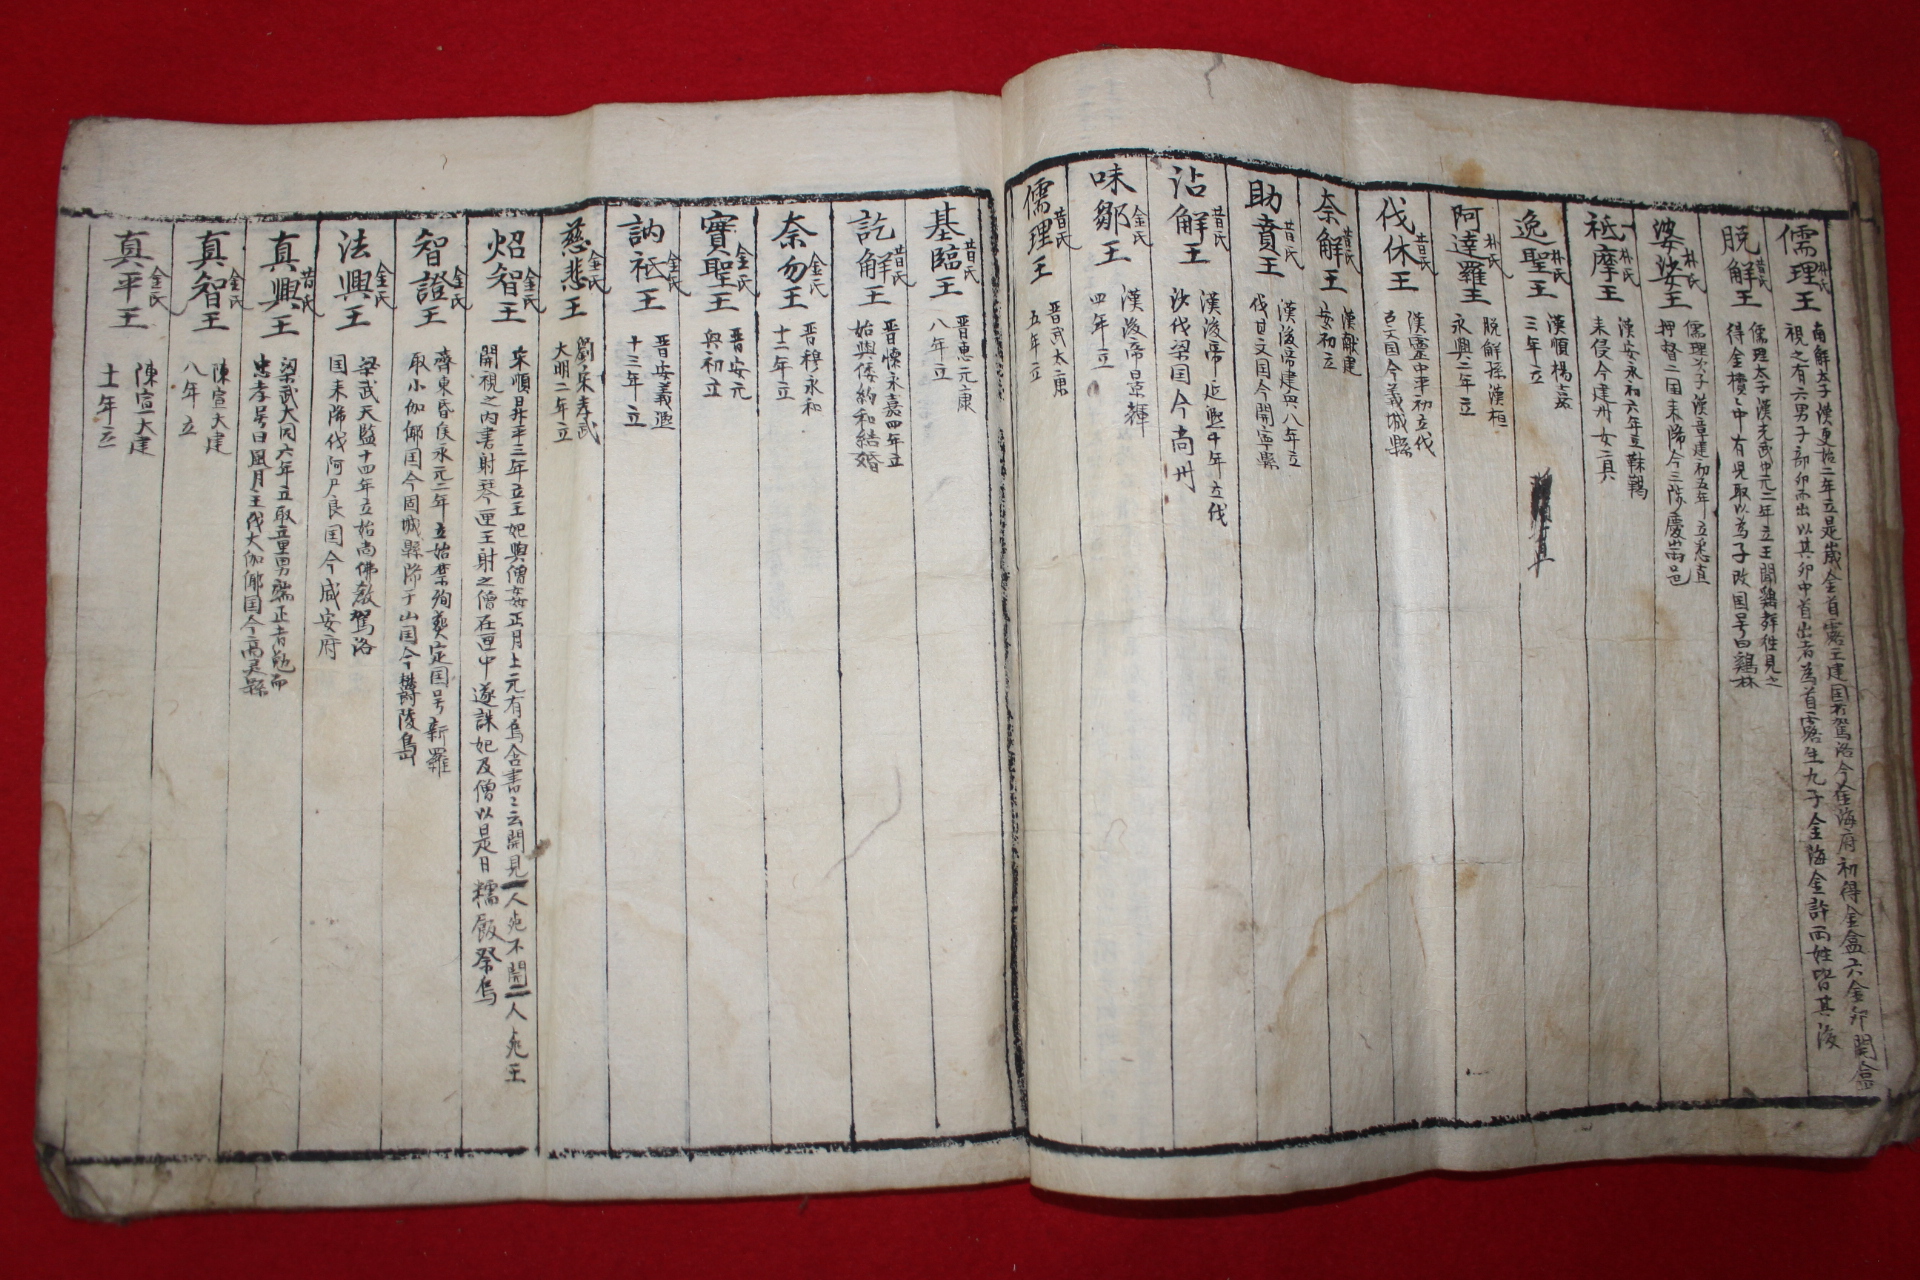 儒理王 朴氏
南解太子漢更始二年立是歲金首露王建国号駕洛今金海府初得金盒六金卵開盒
視之有六男子部卵而出以其卵中首出者為首露生九子金海金許両姓皆其後
脫解王 昔氏
儒理太子漢光武中元二年立王聞鷄莽往見之
得金樻中有児取以為子改国号曰鷄林
婆娑王 朴氏
儒理次子漢章建初五年立悉直
押督二国来降今三陟慶山邑
祗摩王 朴氏
漢安永初六年立靺鞨
来侵今建州女真
逸聖王 朴氏
漢順楊嘉
三年立
阿達羅王 朴氏
脫解孫漢桓
永興二年立
伐休王 昔氏
漢靈中平初立伐
召文国今義城縣
奈解王 昔氏
漢献建
安初立
助賁王 昔氏
漢後帝建興八年立
伐甘文国今開寧縣
沾解王 昔氏
漢後帝延熙十年立伐
沙伐梁国今尚州
味鄒王 金氏
漢後帝景耀
四年立
儒理王 昔氏
晋武太康
五年立
基臨王 昔氏
晋惠元康
八年立
訖解王 昔氏
晋懷永嘉四年立
始與倭約和結婚
奈勿王 金氏
晋穆永和
十二年立
實聖王 金氏
晋安元
興初立
訥祗王 金氏
晋安義熙
十三年立
慈悲王 金氏
劉宋孝武
大明二年立
炤智王 金氏
宋順昇平三年立王妃與僧姦正月上元有烏含書云開見一人死不開二人死王
開視之内書射琴匣王射之僧在匣中遂誅妃及僧以是日糯飯祭烏
智證王 金氏
齊東昏侯永元二年立始禁殉葬定国号新羅
取小伽倻国今固城縣降于山国今欝陵島
法興王 金氏
梁武天監十四年立始尚佛教駕洛
国来降伐阿尸良国今咸安府
真興王 昔氏
梁武大同六年立取立里男端正者勉而
忠孝号曰風月主伐大伽倻国今高灵縣
真智王 金氏
陳宣大建
八年立
真平王 金氏
陳宣大建
十一年立